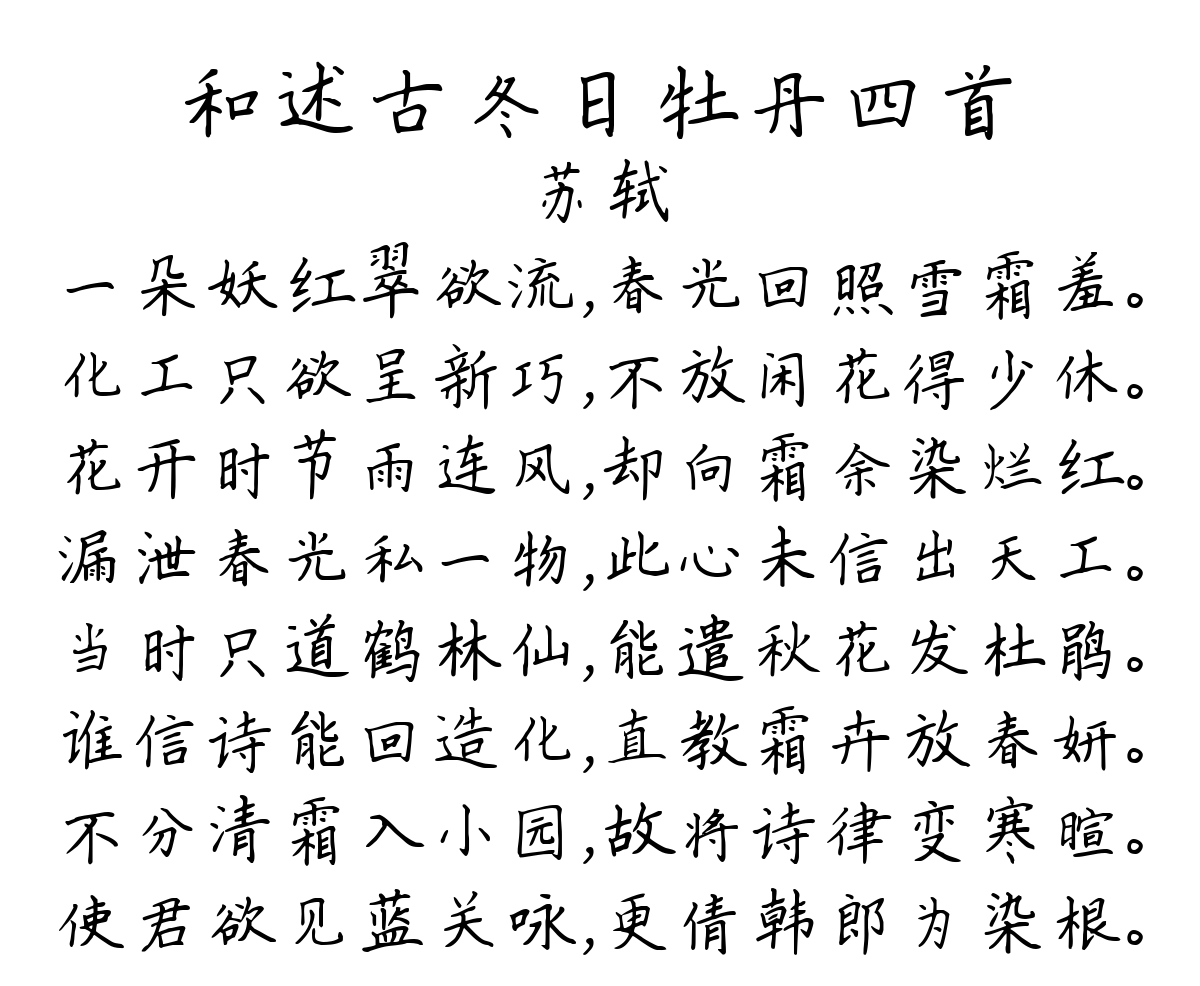 和述古冬日牡丹四首
苏轼
一朵妖红翠欲流,春光回照雪霜羞。
化工只欲呈新巧,不放闲花得少休。
花开时节雨连风,却向霜余染烂红。
漏泄春光私一物,此心未信出天工。
当时只道鹤林仙,能遣秋花发杜鹃。
谁信诗能回造化,直教霜卉放春妍。
不分清霜入小园,故将诗律变寒暄。
使君欲见蓝关咏,更倩韩郎为染根。